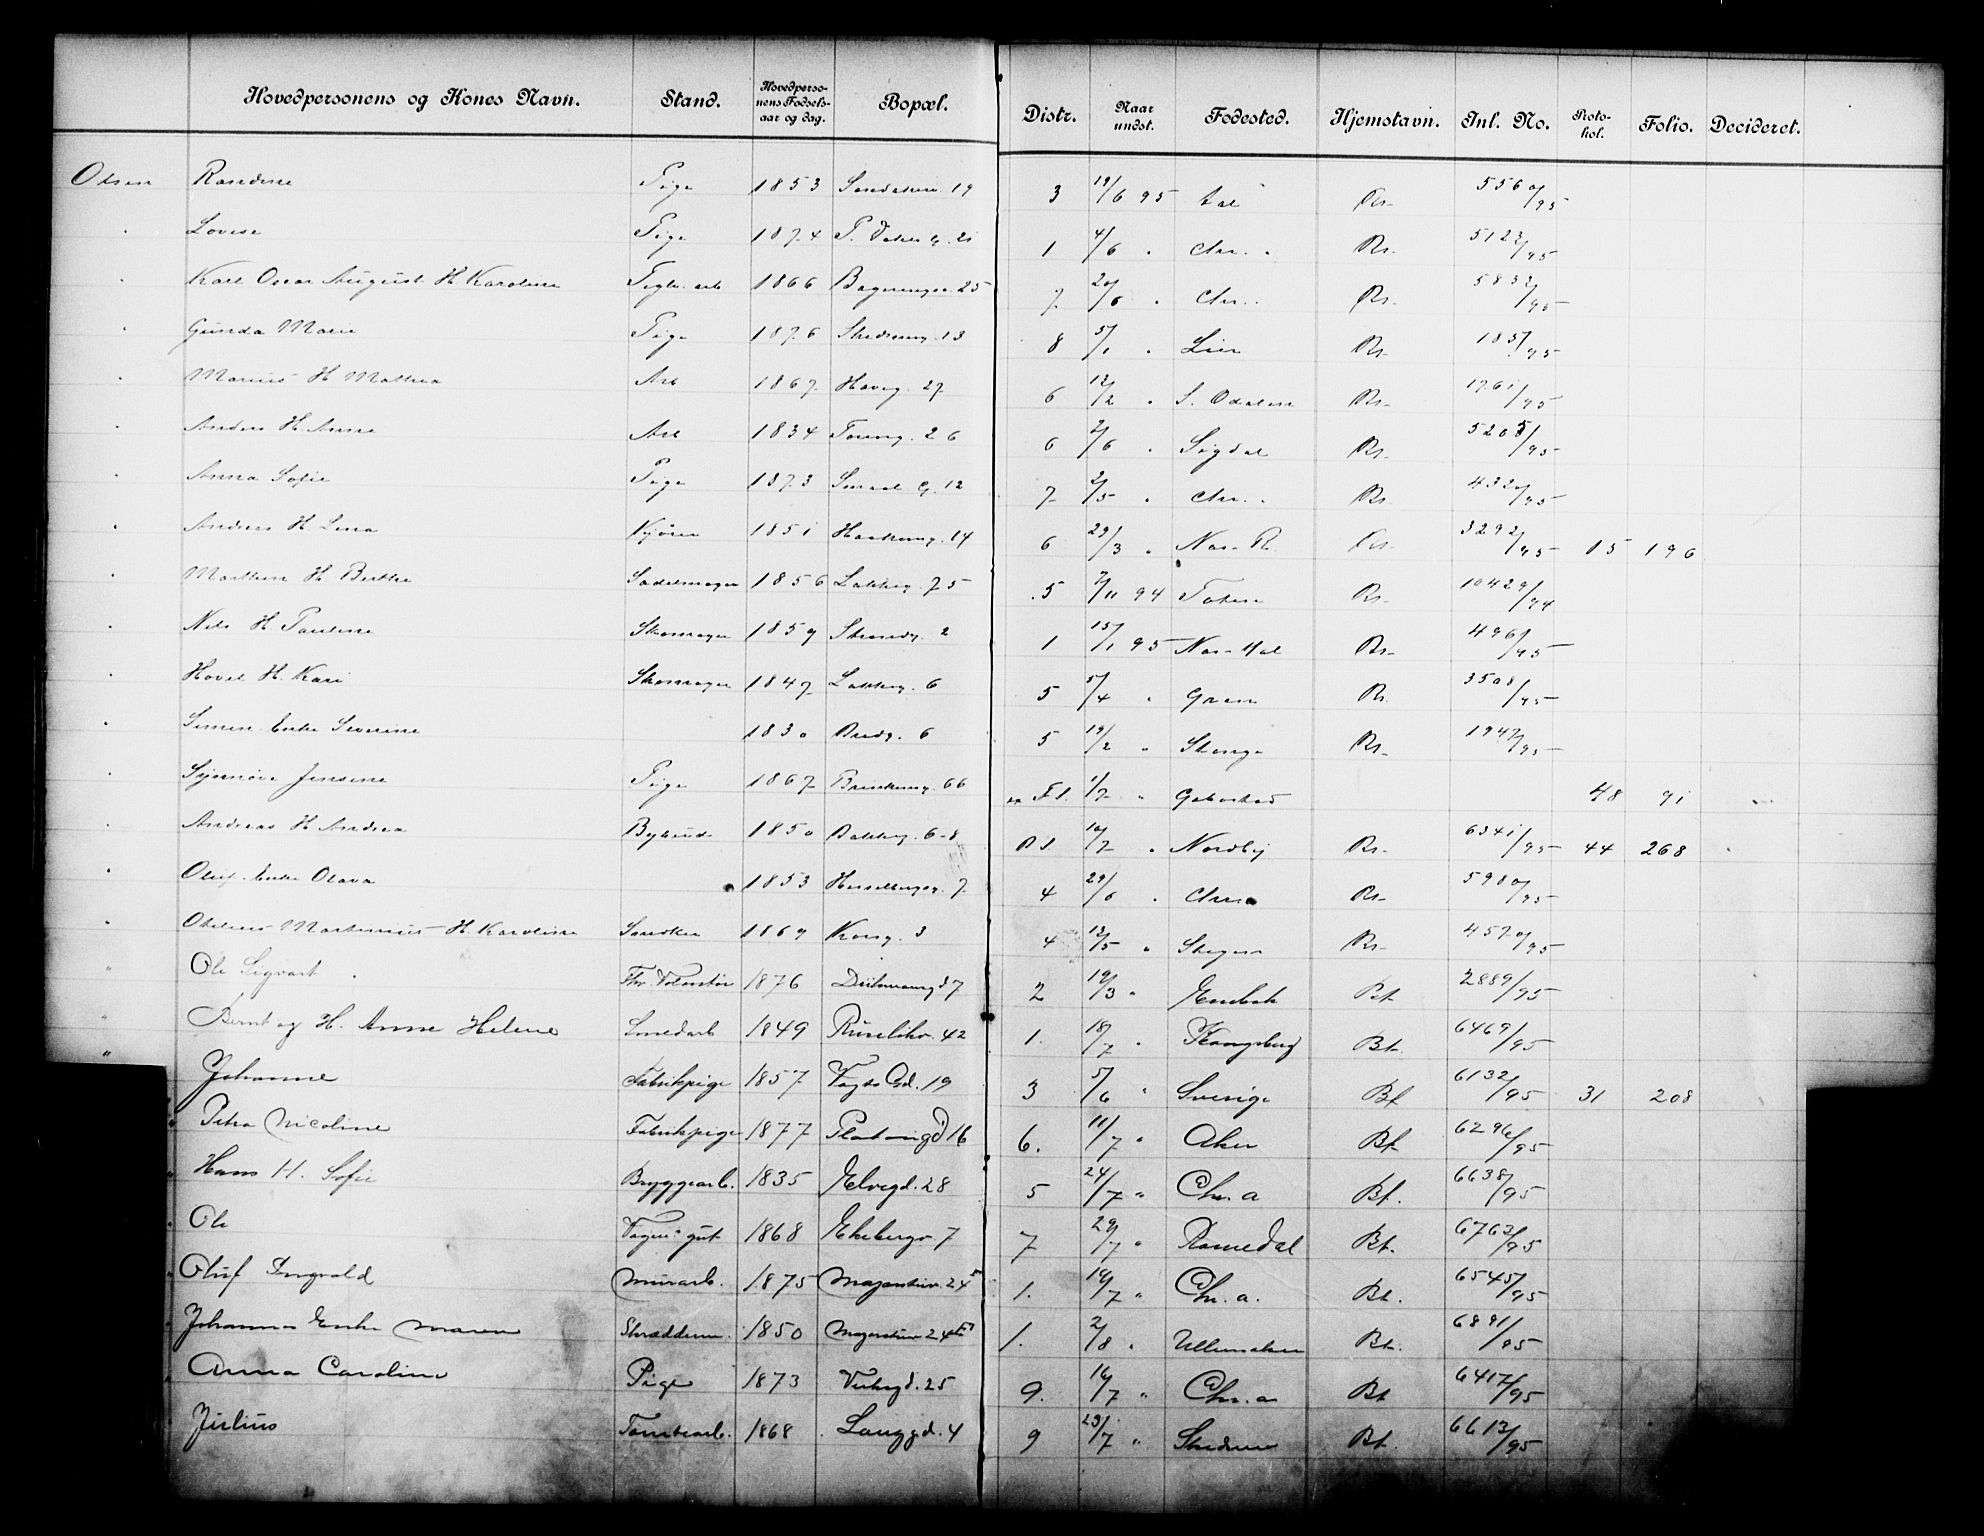 Hovedpersonens og Kones Navn. Stand. Hovedperso- nens Fødsels- aar og dag. Bopæl. Distr. Naar undst. Fødested. Hjemstavn. Inl. No. Proto- kol. Folio. Decideret.
Olsen Randine Pige 1853 Sandakerv. 19 3 19/6 95 Aal Kr. 5560/95
" Lovise Pige 1874 21 1 4/6 " Chr. " Kr. 5122/95
" Karl Oscar August H. Karoline Teglv. arb 1866 25 7 20/6 " Chr. " Kr. 5832/95
" Gunda Marie Pige 1876 13 8 5/1 " Lier Kr. 185/95
" Marius H Mathea Arb 1867 Haveg. 27 6 12/2 " S. Odalen Kr. 1761/95
" Anders H. Anne Arb 1834 Toveng. 26 6 2/6 " Sigdal Kr. 5205/95
" Anna Sofie Pige 1873 Smaal G. 12 7 2/5 " Chr. " Kr. 4320/95
" Andreas H. Lina Kjører 1851 14 6 23/3 " Kr. 3292/95 15 196
" Mathias H Berthe Sadelmager 1856 Lakkeg. 75 5 7/11 94 Toten Kr. 10429/94
" Nils H. Pauline Skomager 1859 Strandg. 2 1 15/1 95 Kr. 496/95
" Hovel H. Kari Skomager 1847 Lakkeg. 6 5 5/4 " Gran Kr. 3508/95
" Simen Enke Severine 1830 Bredg. 6 5 19/2 " Kr. 1947/95
" Synnøve Jensine Pige 1867 Brinkeng. 66 1/7 " 48 91
" Andreas H Andrea Bybud 1850 Bakkeg. 6-8 10/7 " Nordby Kr. 6341/95 44 268
" Oluf Enke Olava 1853 Hesselbergsg. 7 4 29/6 " Chr.a Kr. 5980/95
" Otelius Martinius H. Karoline Snedker 1869 Kong. 3 4 13/5 " Kr. 4570/95
" Ole Sigvart 1876 7 2 19/3 " Enebak Bt. 2889/95
" Bernt og H. Anne Helene Smedarb 1849 Ruselökv. 42 1. 18/7 " Kongsberg Bt. 6469/95
" Johanne Fabrikpige 1857 Vogts Gd. 19 3 5/6 " Sverige Bt 6132/95 31 208
" Petra Nicoline Fabrikpige 1877 16 6. 11/7 " Aker Bt 6296/95
" Hans H. Sofie Bryggearb. 1835 Elvegd. 28 5 24/7 " Chr. a Bt. 6638/95
" Ole 1868 Ekebergv 7 7 29/7 " Romedal Bt. 6762/95
" Oluf Ingvald Murarb. 1875 24 1. 19/7 " Ch. a. Bt. 6545/95
" Johannes Enke Maren 1850 24 1. 2/8 " Ullensaker Bt. 6891/95
Anna Caroline Pige 1873 25 9. 16/7 " Chr. a Bt 6417/95
Julius Tomtearb. 1868 Langgd. 4 9 23/7 " Skedsmo Bt. 6613/95